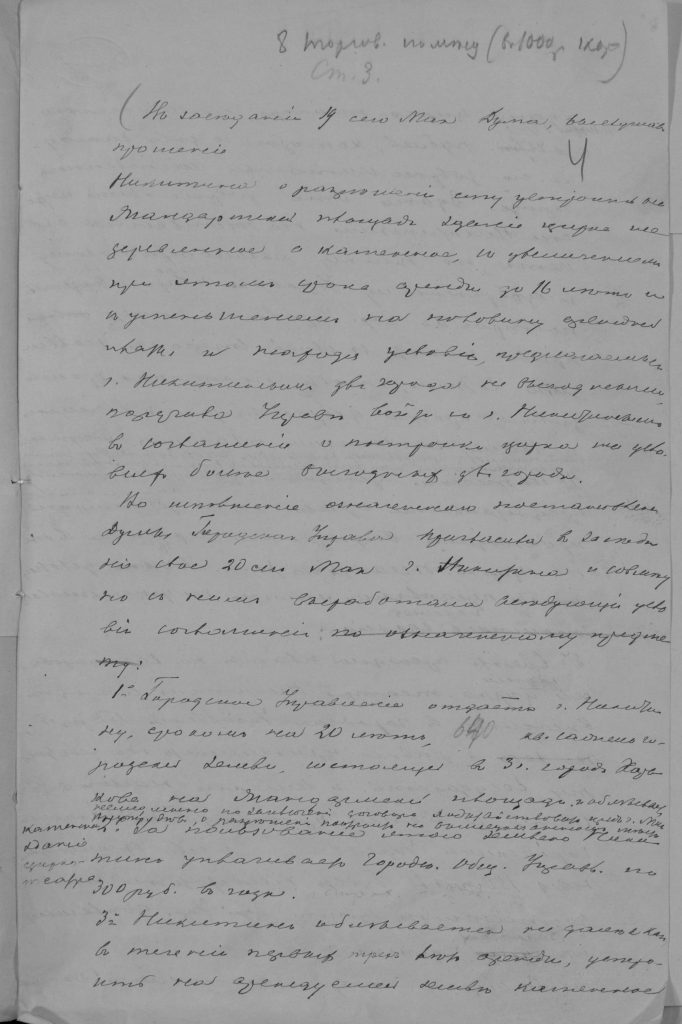 8 торгов. по
Ст. 3.
4
(Въ заседаніи 19 сего Мая Дума, выслушавъ
прошеніе
Никитина о разрѣшеніи ему устроить на
площади зданіе цирка не
деревянное а каменное, съ увеличеніемъ
при этомъ срока аренды до 16 лѣтъ и
съ уменьшеніемъ на половину арендной
платы и находя условія, предлагаемыя
г. Никитинымъ для города не выгодными
поручила Управѣ войти съ г. Никитинымъ
въ соглашеніе о постройкѣ цирка на усло-
віяхъ болѣе выгодныхъ для города.
Во исполненіе означеннаго постановленія
Думы Городская Управа пригласила въ заседа-
ніе свое 20 сего Мая г. Никитина и совмѣст
но съ нимъ выработала слѣдующія усло-
вія соглашенія: по означенному предме-
ту:
1. Городское Управленіе отдаетъ г. Никити-
ну, срокомъ на 20 лѣтъ, 640 кв. саженъ го-
родской земли, состоящей въ 3 ч. города Харь-
кова на площади
каменное
зданіе
цирка-
театра
2. За пользованіе этою землею Ники-
тинъ уплачиваетъ Городск. Общ. Управл. по
300 руб. въ годъ.
3. Никитинъ обязывается не далѣе какъ
въ теченіи первыхъ трехъ лѣтъ аренды, устро-
ить на арендуемой землѣ каменное